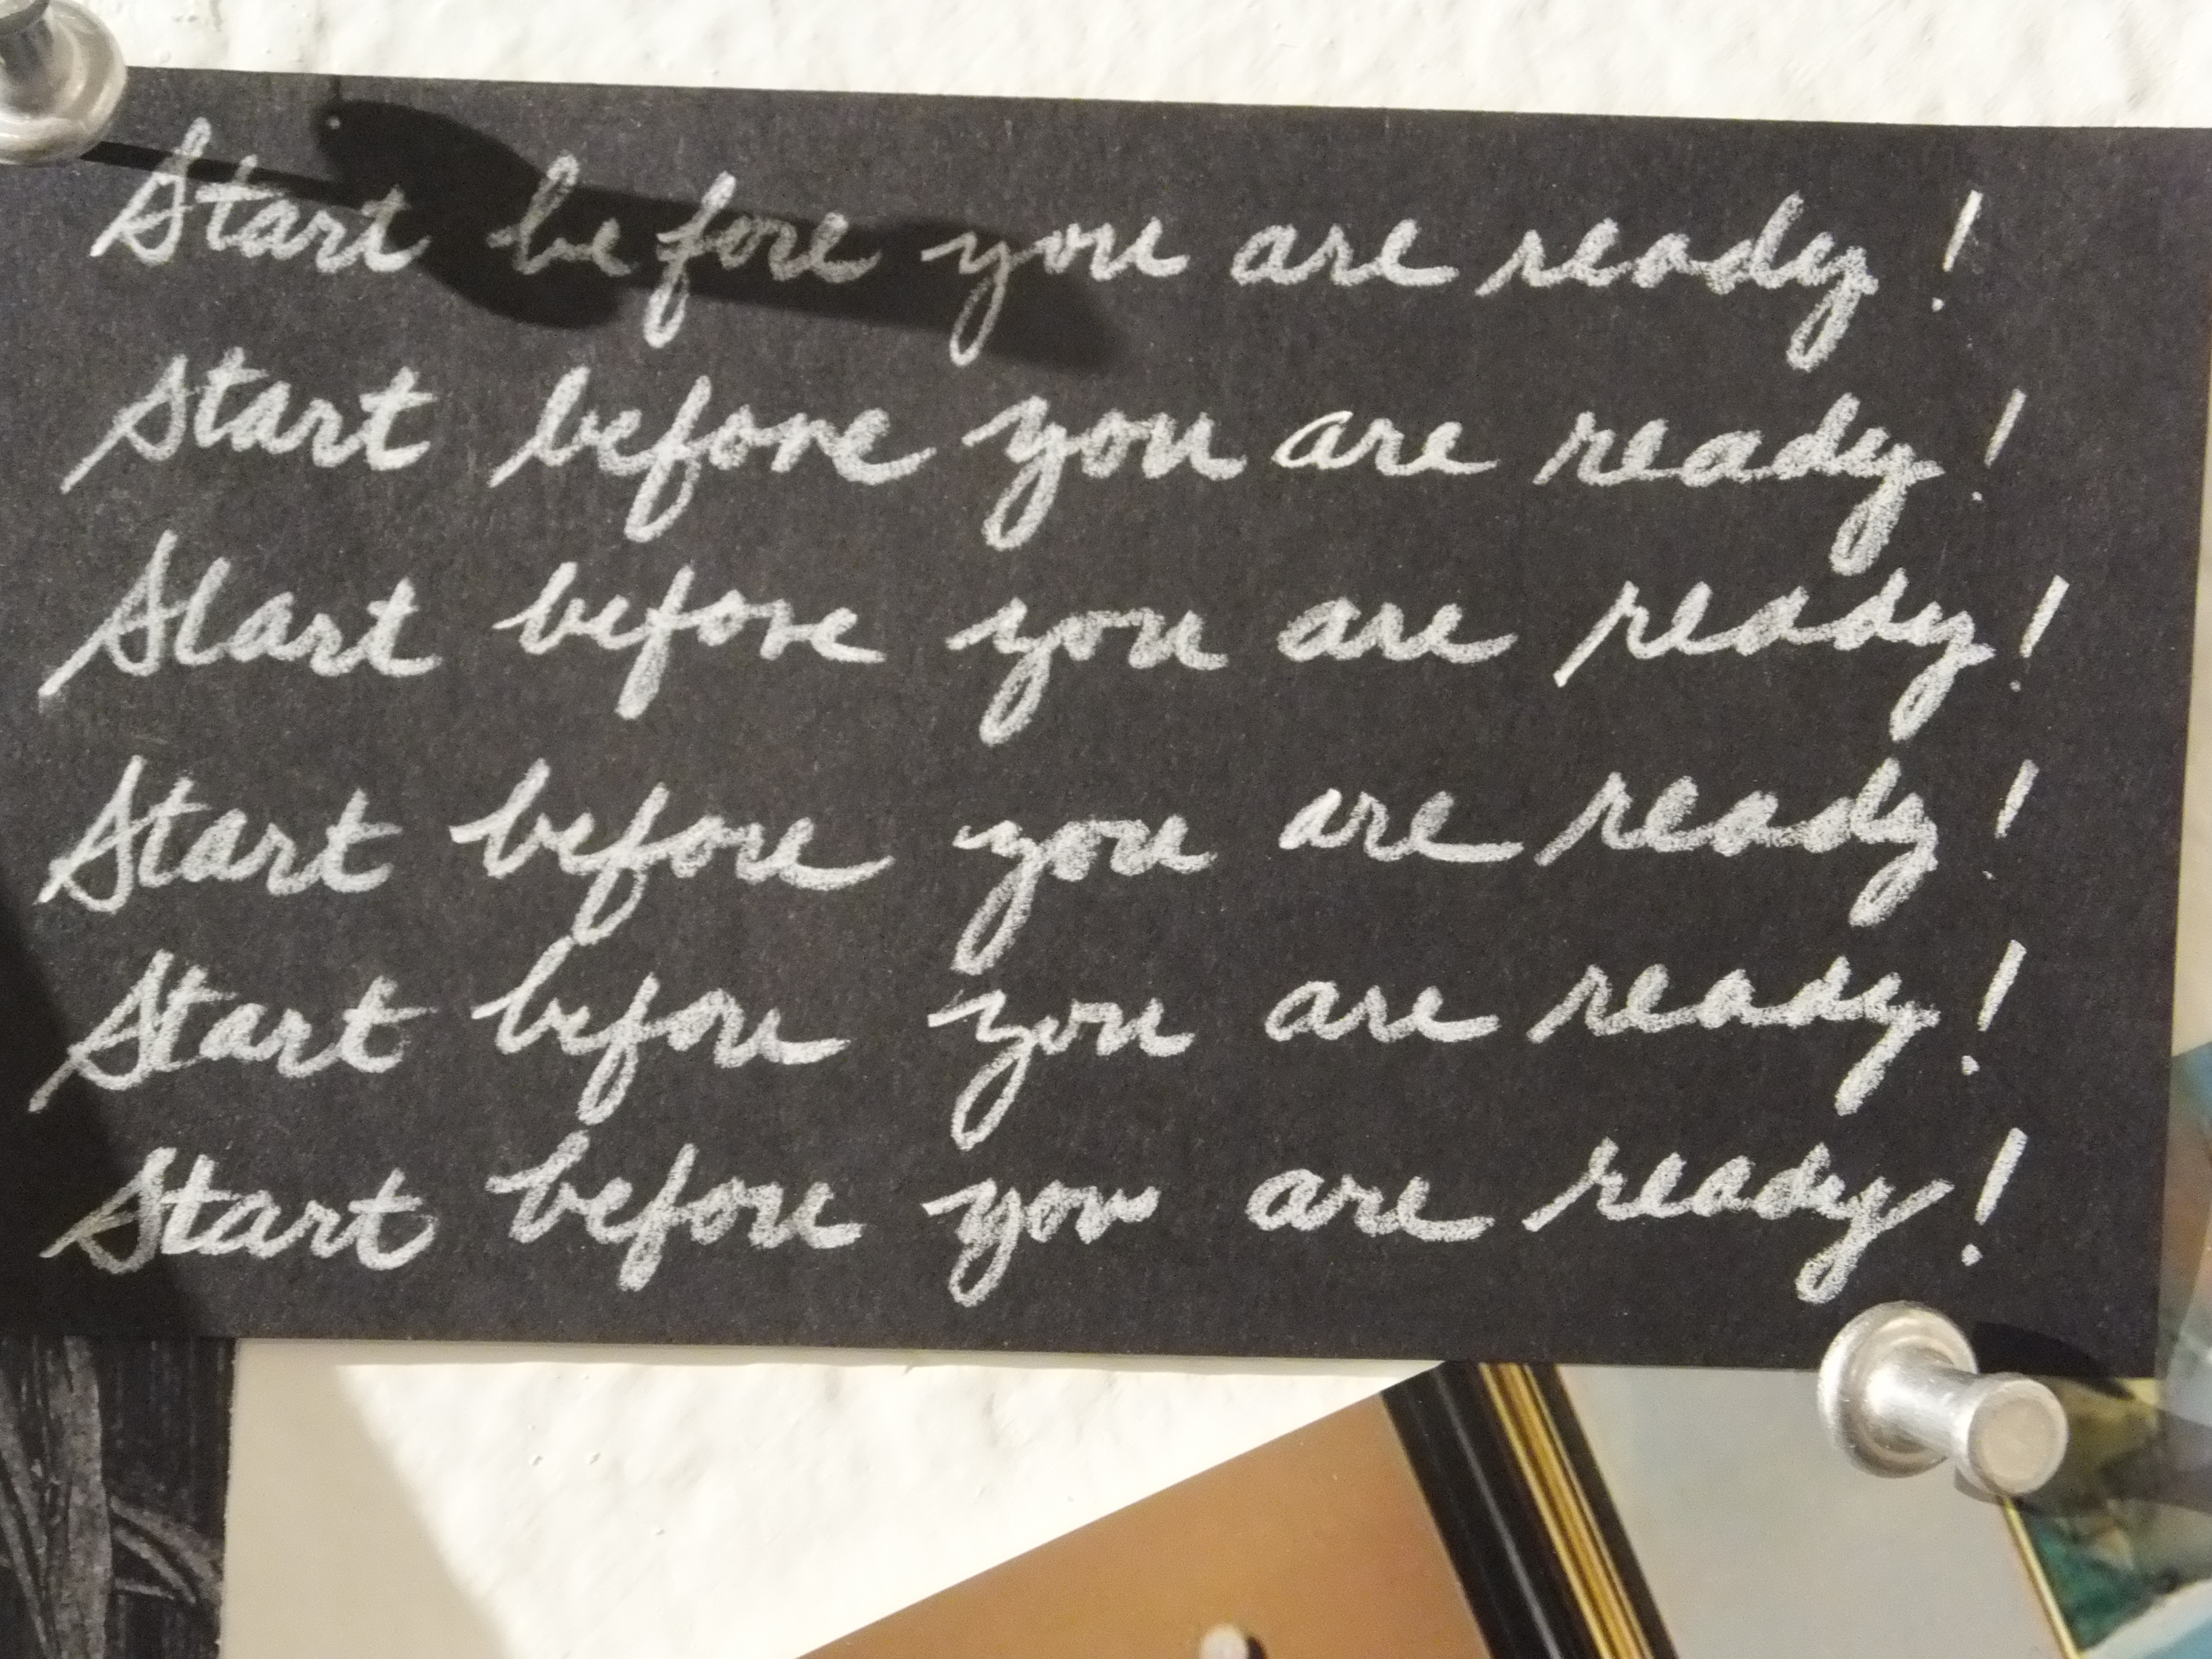 Start before you are ready!
Start before you are ready!
Start before you are ready!
Start before you are ready!
Start before you are ready!
Start before you are ready!